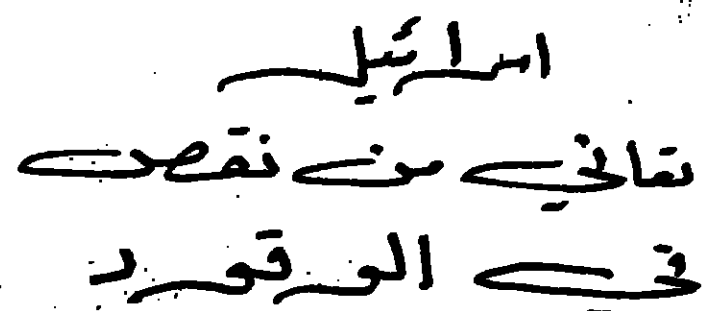 اسرائيل
تعاني من نقص
في الوقود